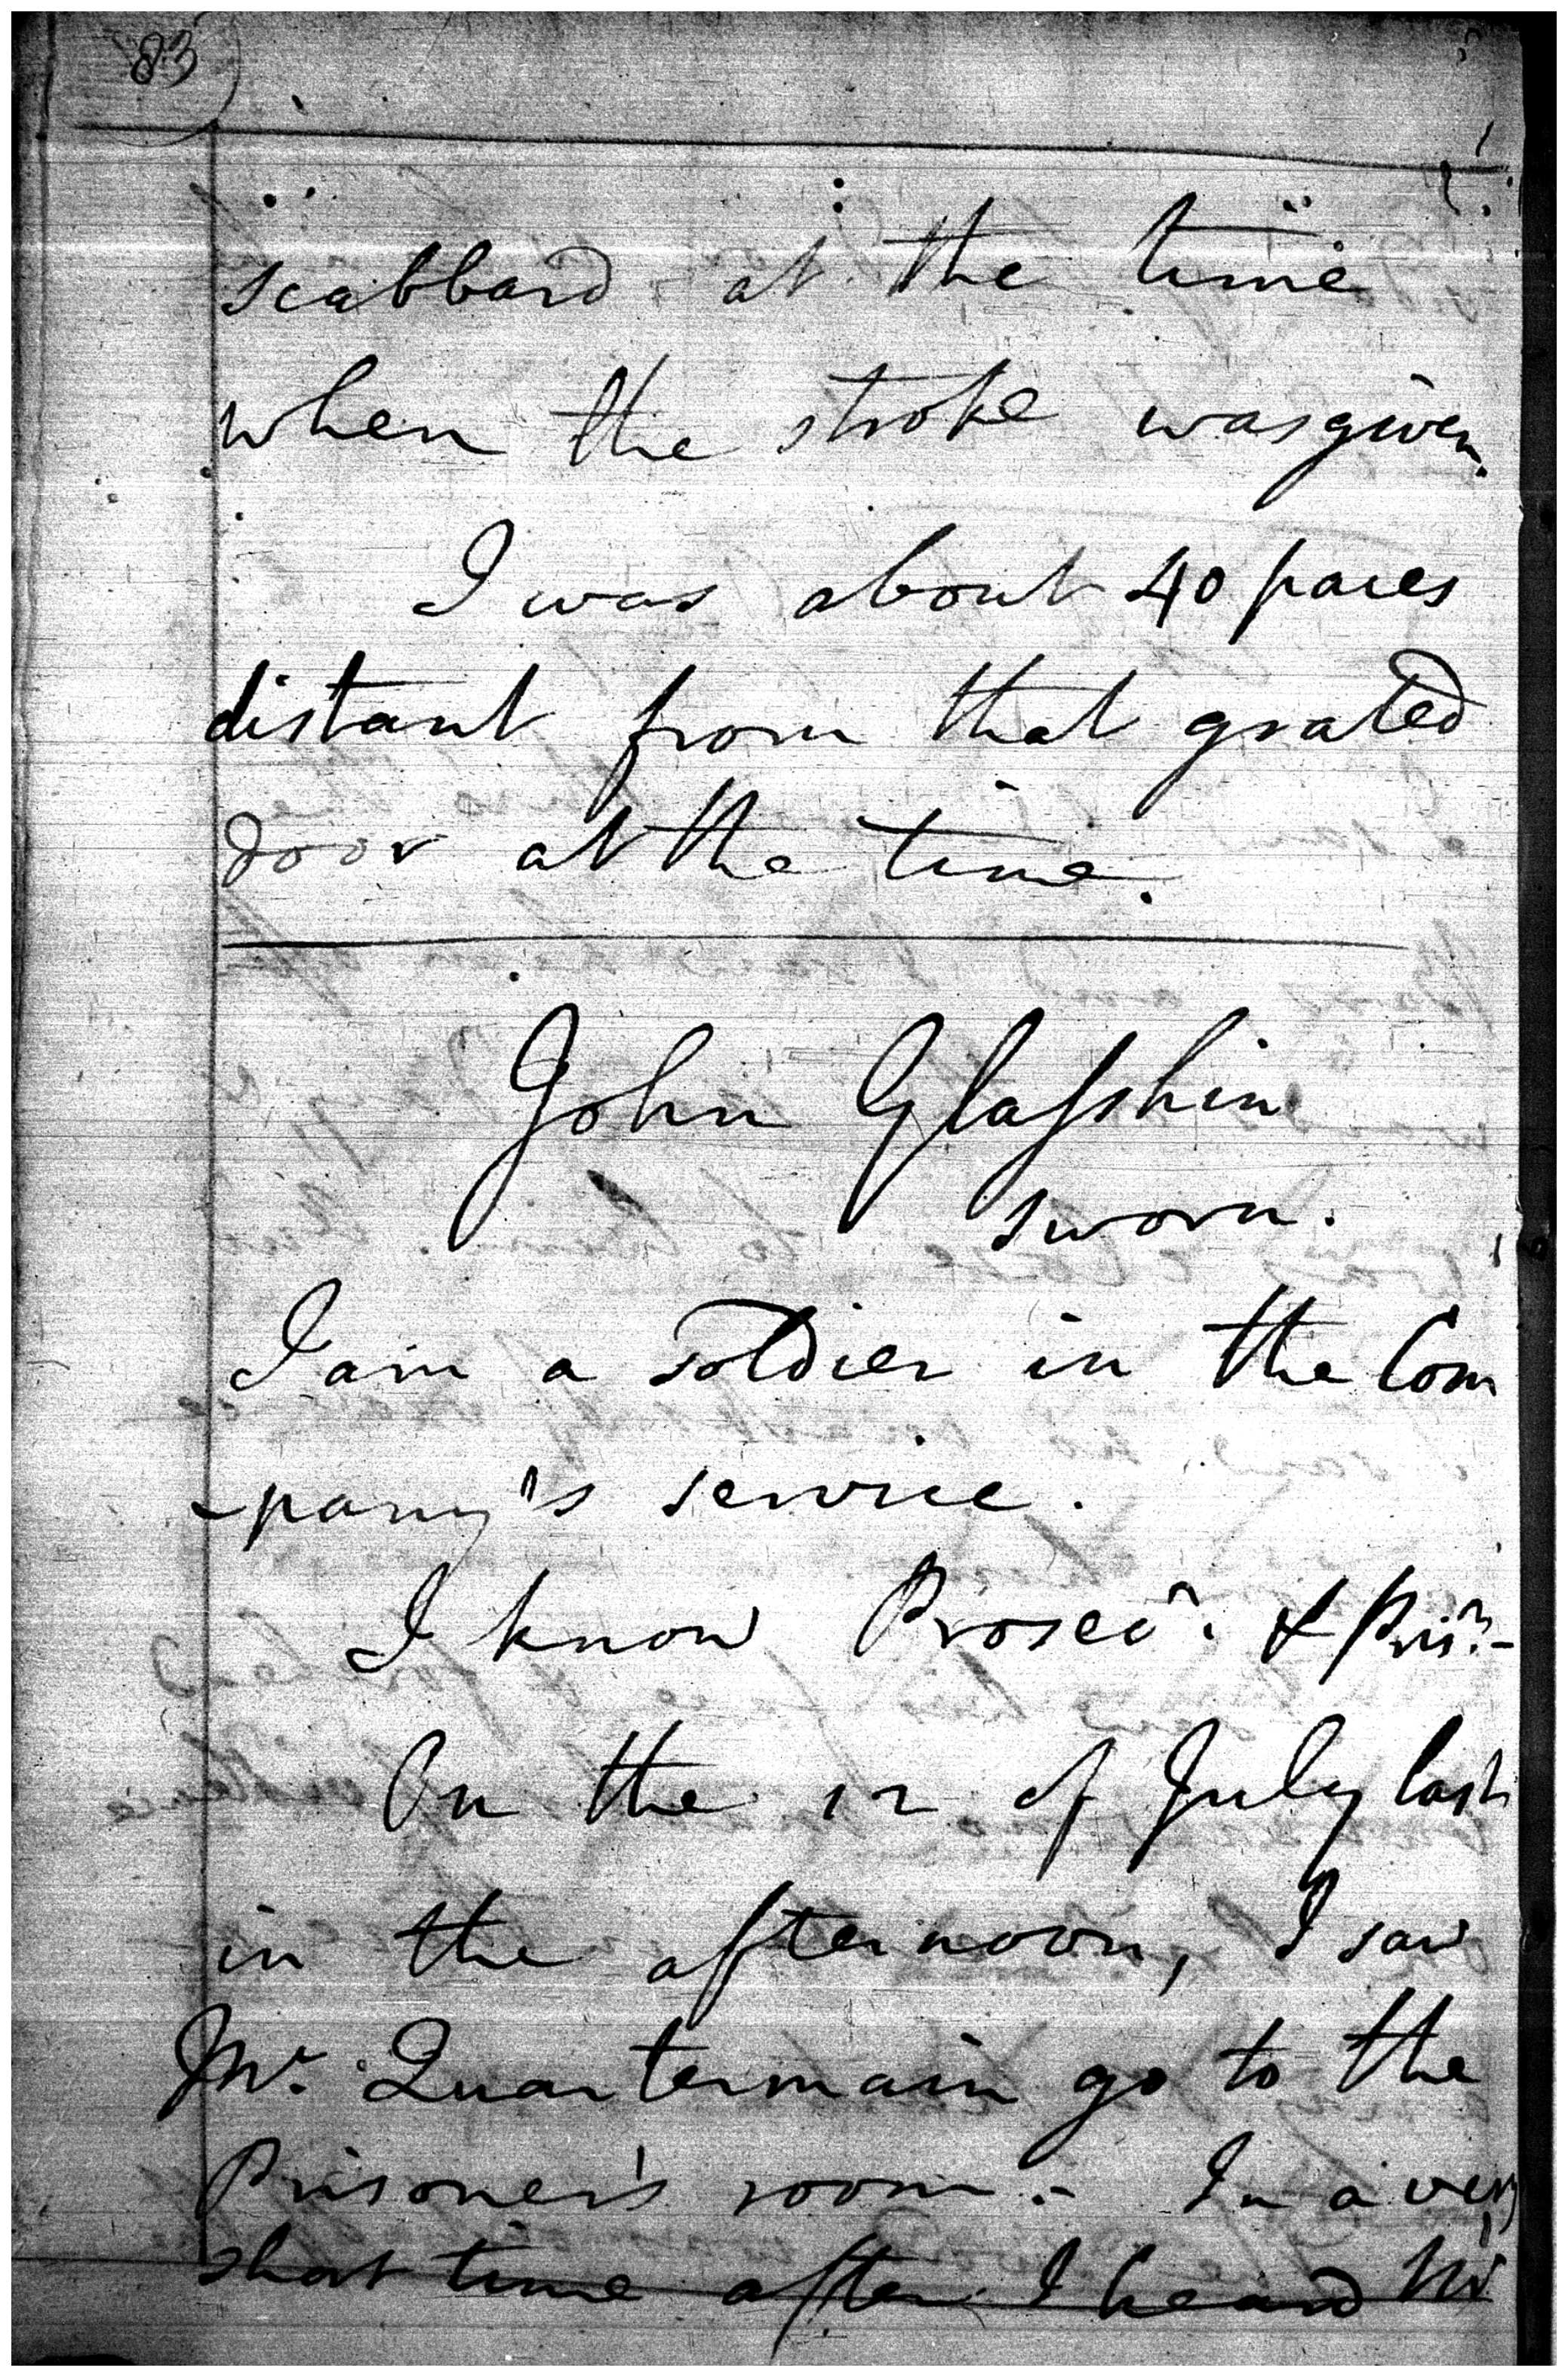 83
scabbard at the time
when the stroke was given.
I was about 40 paces
distant from that grated
door at the time.
John Glasshin
sworn.
I am a soldier in the Com
-pany's service.
I know Prosecr. & Prisr.-
On the 12 of July last
in the afternoon, I saw
Mr. Quartermain go to the
Prisoner's room.- In a very
short time after I heard Mr